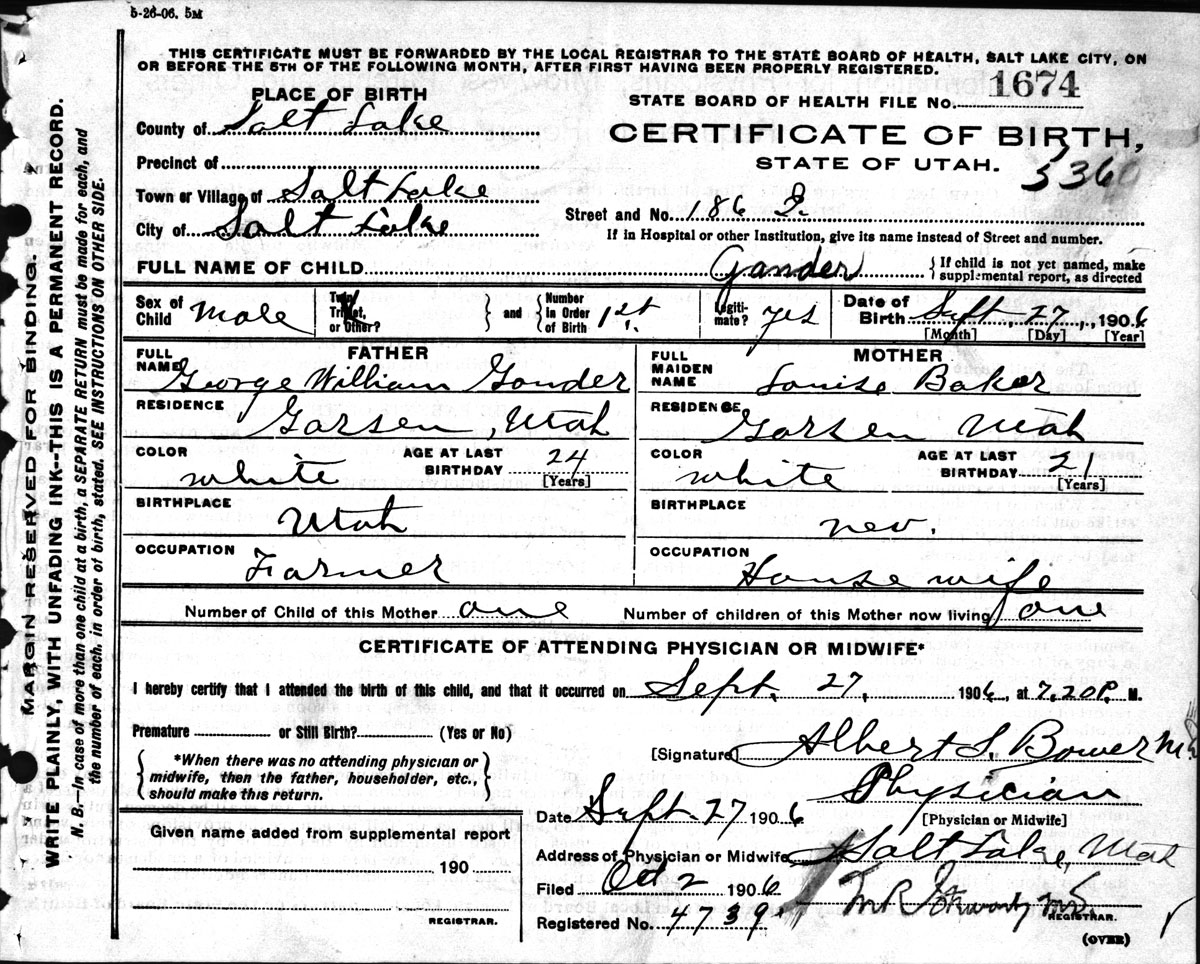 5-26-06. 5M
THIS CERTIFICATE MUST BE FORWARDED BY THE LOCAL REGISTRAR TO THE STATE BOARD OF HEALTH, SALT LAKE CITY, ON
OR BEFORE THE 5TH OF THE FOLLOWING MONTH, AFTER FIRST HAVING BEEN PROPERLY REGISTERED.
PLACE OF BIRTH
County of Salt Lake
Precinct of
Town or Village of Salt Lake
City of Salt Lake
STATE BOARD OF HEALTH FILE No. 1674
CERTIFICATE OF BIRTH,
STATE OF UTAH.
3360
Street and No. 186
If in Hospital or other Institution, give its name instead of Street and number.
FULL NAME OF CHILD Gander { If child is not yet named, make
supplemental report, as directed
Sex of Child Male
Twin, Triplet, or Other? } and { Number in Order of Birth 1st.
Legitimate? yes
Date of Birth Sept. 27, 1906
[Month] [Day] [Year]
FATHER
FULL NAME George William Gander
RESIDENCE Garsen, Utah
COLOR white AGE AT LAST BIRTHDAY 24
[Years]
BIRTHPLACE Utah
OCCUPATION Farmer
MOTHER
FULL MAIDEN NAME Louise Baker
RESIDENCE Garsen Utah
COLOR white AGE AT LAST BIRTHDAY 21
[Years]
BIRTHPLACE Nev.
OCCUPATION House wife
Number of Child of this Mother one Number of children of this Mother now living one
CERTIFICATE OF ATTENDING PHYSICIAN OR MIDWIFE*
I hereby certify that I attended the birth of this child, and that it occurred on Sept. 27, 1906, at 7,20 P. M.
Premature or Still Birth? (Yes or No)
{ *When there was no attending physician or
midwife, then the father, householder, etc.,
should make this return. }
Given name added from supplemental report
190
REGISTRAR.
[Signature] Albert S. Bower M.D.
Physician
[Physician or Midwife]
Date Sept. 27 1906
Address of Physician or Midwife Salt Lake, Utah
Filed Oct 2 1906
REGISTRAR.
Registered No. 4739
(OVER)
MARGIN RESERVED FOR BINDING.
WRITE PLAINLY, WITH UNFADING INK--THIS IS A PERMANENT RECORD.
N. B.—In case of more than one child at a birth, a SEPARATE RETURN must be made for each, and
the number of each. in order of birth, stated. SEE INSTRUCTIONS ON OTHER SIDE.